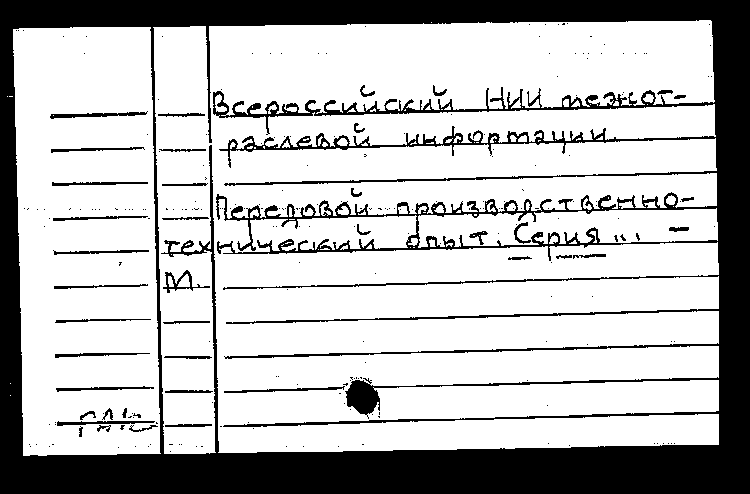 Всероссийский НИИ межот-
раслевой информации.
Передовой производственно-
технический опыт. Серия ... –
М.
ГАК